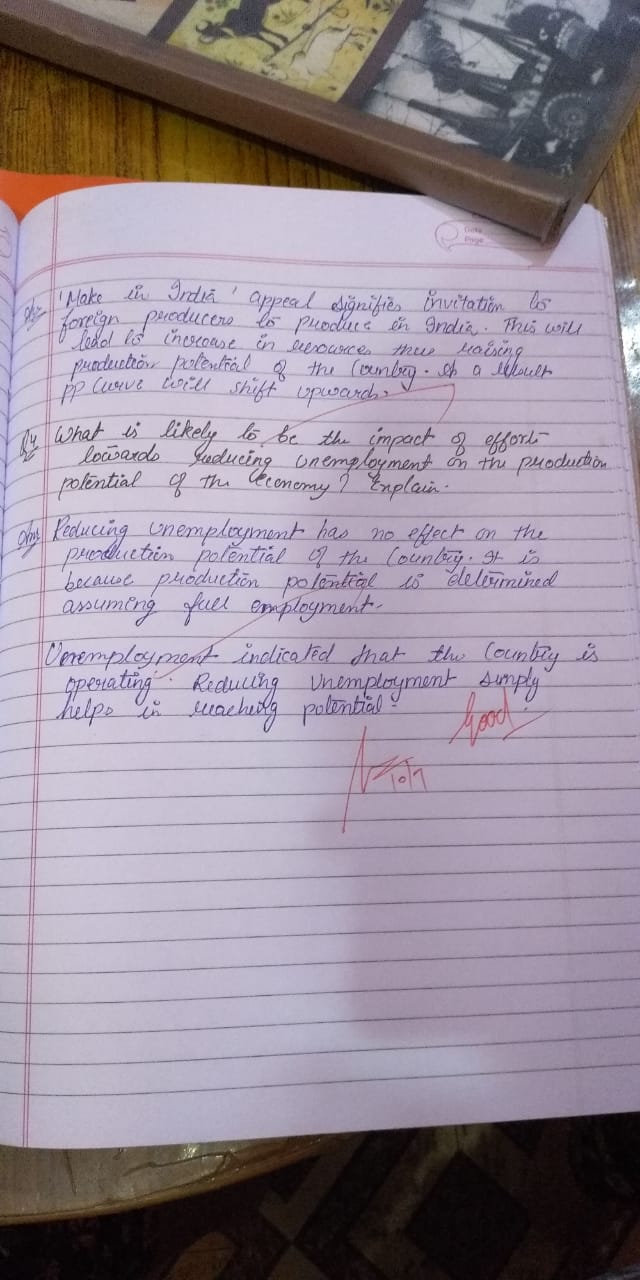 Date
Page
Ans 'Make in India' appeal signifies invitation to
foreign producers to produce in India. This will
lead to increase in resources thus raising
production potential of the Country. As a result
PP Curve will shift upwards.
Q4 What is likely to be the impact of efforts
towards reducing unemployment on the production
potential of the economy? Explain.
Ans Reducing unemployment has no effect on the
production potential of the Country. It is
because production potential is determined
assuming full employment.
Unemployment indicated that the Country is
operating. Reducing Unemployment simply
helps in reaching potential.
Good